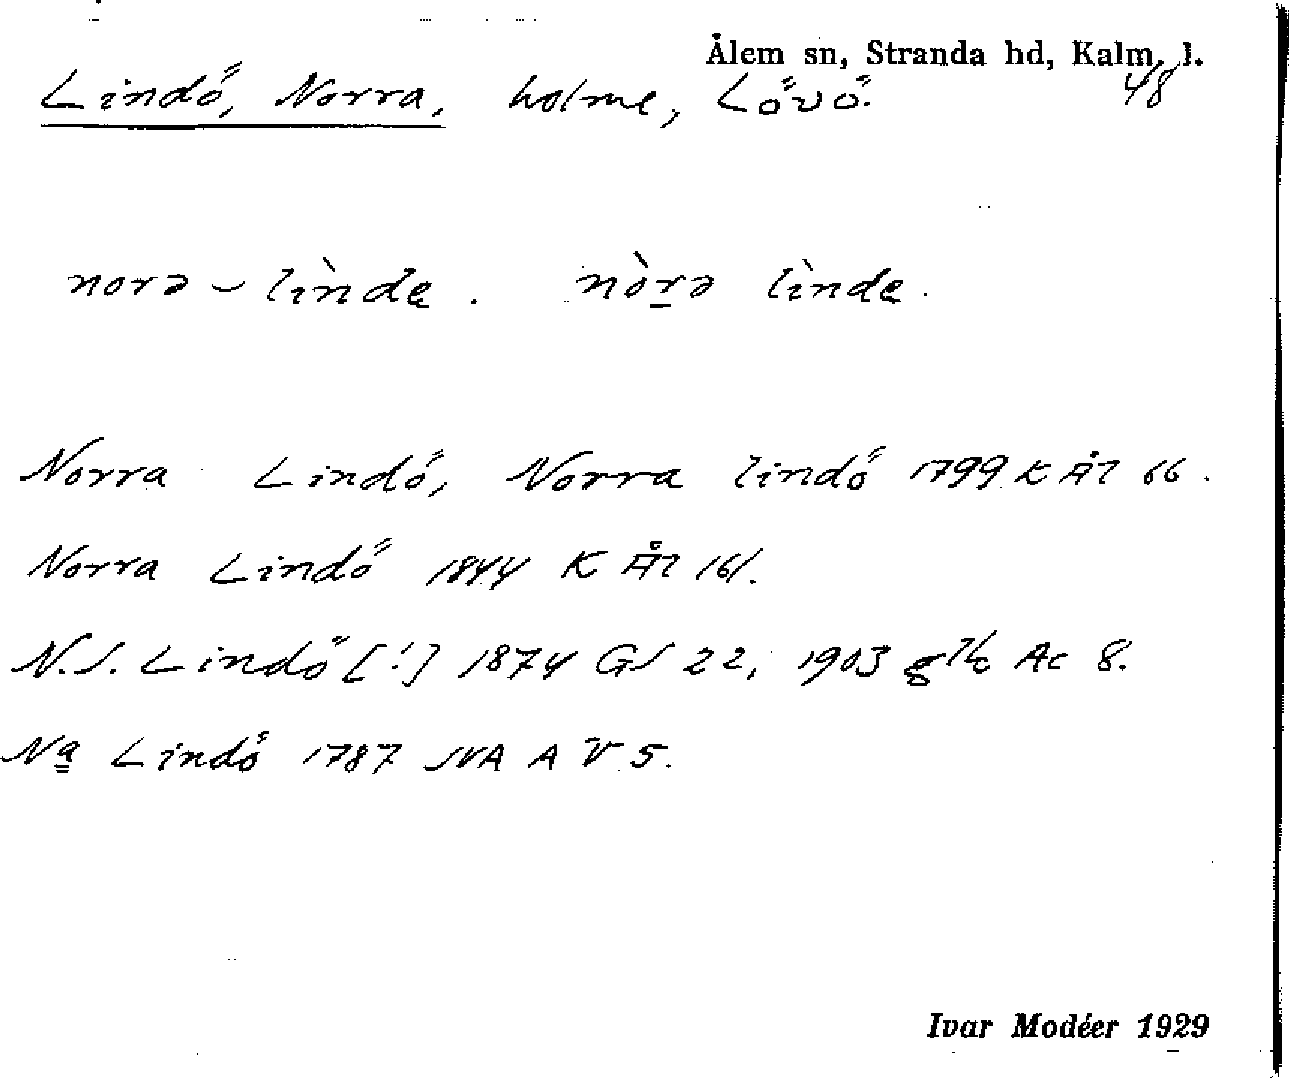 Ålem sn, Stranda hd, Kalm. l.
Lindö, Norra, holme, Lövö. 48
norə – lìndę. nòrə lìndę.
Norra Lindö, Norra lindö 1799 K Ål 66.
Norra Lindö 1844 K Ål 161.
N. S. Lindö [!] 1874 GS 22, 1903 Ac 8.
Na Lindö 1787 SVA A V 5.
Ivar Modéer 1929